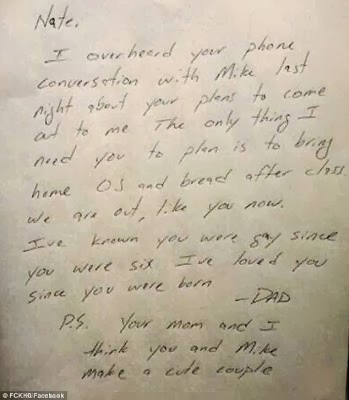 Nate,
I overheard your phone
conversation with Mike last
night about your plans to come
out to me The only thing I
need you to plan is to bring
home OJ and bread after class.
We are out, like you now.
I've known you were gay since
you were six I've loved you
since you were born
-DAD
P.S. Your mom and I
think you and Mike
make a cute couple
© FCKH8/Facebook